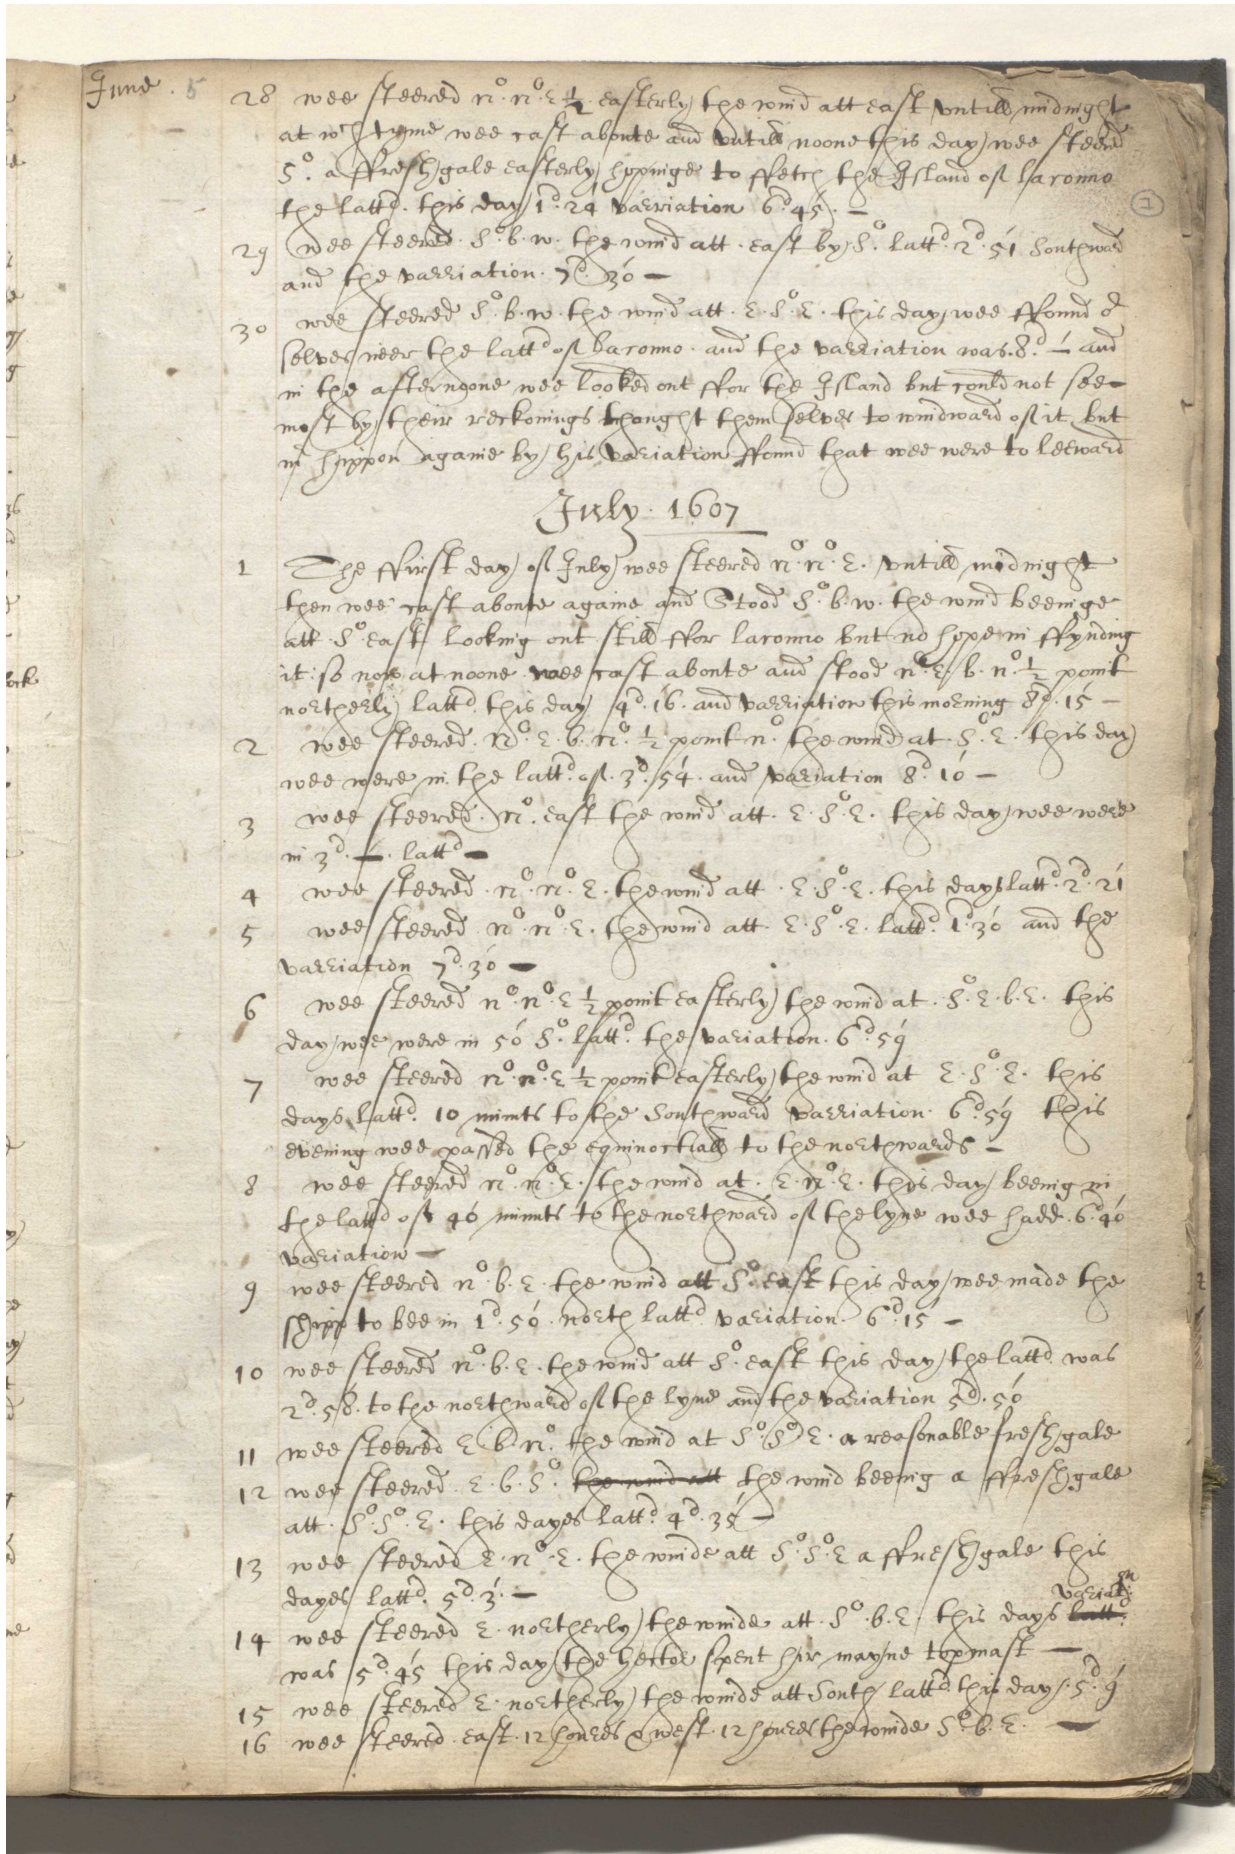 June . 5
28 wee steered n°. n°. E ½ easterly the wind att east untill midnight
at wch tyme wee cast aboute and untill noone this day wee steered
S°. a ffresh gale easterly hopinge to ffetch the Island of laronno
the lattd. this day 1d. 24 varriation 6d 45. —
1
29 wee steered. S°. b. w. the wind att. east by S°. lattd. 2d. 51 Southward
and the varriation. 7d. 30 —
30 wee steered S°. b. w. the wind att. E. S°. E. this day wee ffound or
selves neer the lattd of Laronno. and the varriation was. 8d. — and
in the afternoone wee looked out ffor the Island but could not see
most by their reckonings thought them selves to windward of it but
mr hippon againe by his variation ffound that wee were to leeward
July. 1607
1 The ffirst day of July wee steered n°. n°. E. untill midnight
then wee cast aboute againe and Stood S°. b. w. the wind beeinge
att. S°. east looking out still ffor laronno but no hope in ffynding
it: so now at noone wee cast aboute and stood n°. E. b. n°. ½ point
northerly lattd. this day 4d. 16. and varriation this morning 8d. 15 —
2 wee steered. N°. E. b. N°. ½ point n°. the wind at. S°. E. this day
wee were in the lattd. of. 3d. 54. and variation 8d. 10 —
3 wee steered. N°. east the wind att. E. S°. E. this day wee were
in 3d. —. lattd —
4 wee steered. n°. n°. E. the wind att. E. S°. E. this days lattd. 2d. 21
5 wee steered. n°. n°. E. the wind att. E. S°. E. lattd. 1d. 30 and the
varriation 7d. 30 —
6 wee steered n°. n°. E ½ point easterly the wind at. S°. E. b. E. this
day wee were in 50 S°. lattd. the variation. 6d. 59
7 wee steered n°. n°. E ½ point easterly the wind at E. S°. E. this
days lattd. 10 minuts to the Southward varriation. 6d. 59 this
evening wee passed the equinoctiall to the northwards —
8 wee steered n°. n°. E. the wind at. E. n°. E. this day beeing in
the lattd of 46 minuts to the northward of the lyne wee hadd. 6d 40
variation —
9 wee steered n°. b. E. the wind att S°. east this day wee made the
shipp to bee in 1d. 50. north lattd. variation. 6d. 15 —
10 wee steered n°. b. E. the wind att S°. east this day the lattd. was
2d. 58. to the northward of the lyne and the variation 5d. 50
11 wee steered E. b. n°. the wind at S°. S°. E. a reasonable fresh gale
12 wee steered. E. b. S°. the wind att the wind beeing a ffresh gale
att. S°. S°. E. this dayes lattd. 4d. 35 —
13 wee steered E. n°. E. the winde att S°. S°. E a ffresh gale this
dayes lattd. 5d. 3. —
variatn:
14 wee steered E. northerly the winde att. S°. b. E. this days lattd:
was 5d. 45 this day the hector spent hir mayne topmast —
15 wee steered E. northerly the winde att South lattd. this day. 5d. 9
16 wee steered. east. 12 houres & west. 12 houres the winde S°. b. E. —